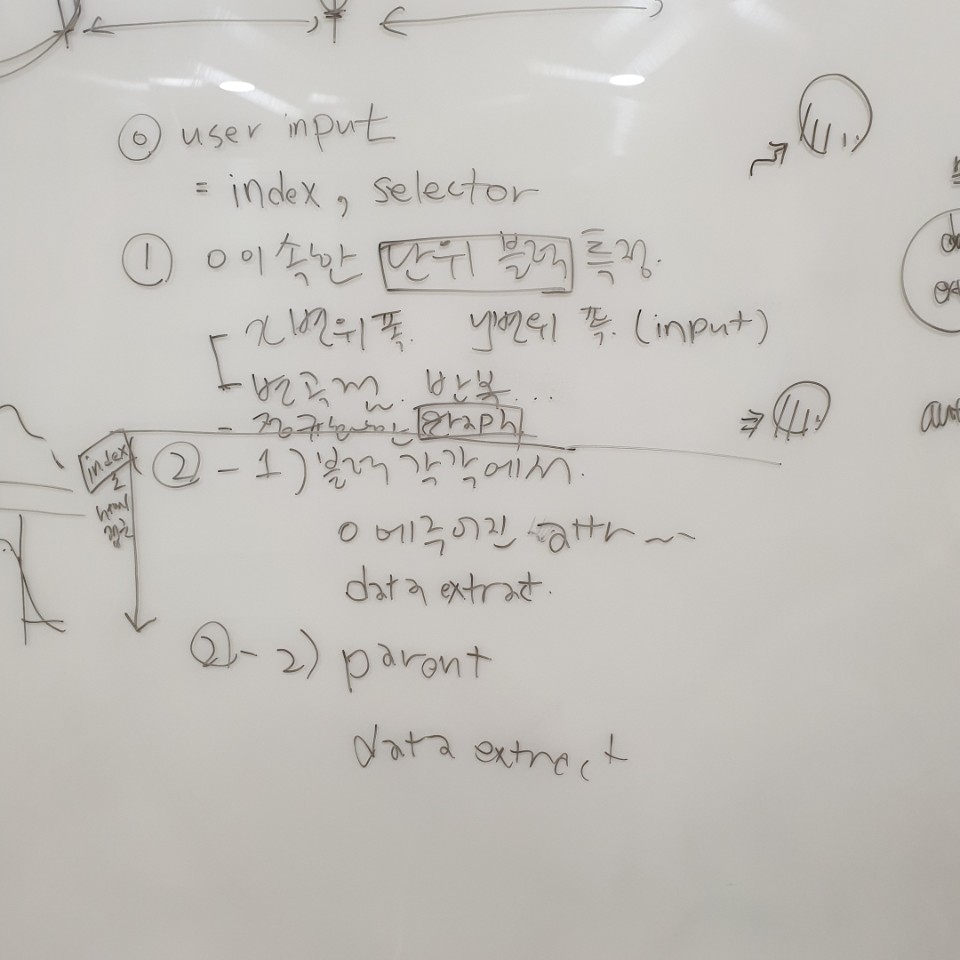 ⓪ user input
= index, selector
① 0이 속한 단위 블럭 특정.
x변위 폭. y변위 폭. (input)
변곡점. 반복...
- graph
index
②-1) 블럭 각각에서.
0에 주어진 attr ~~
data extract.
②-2) paront
data extract